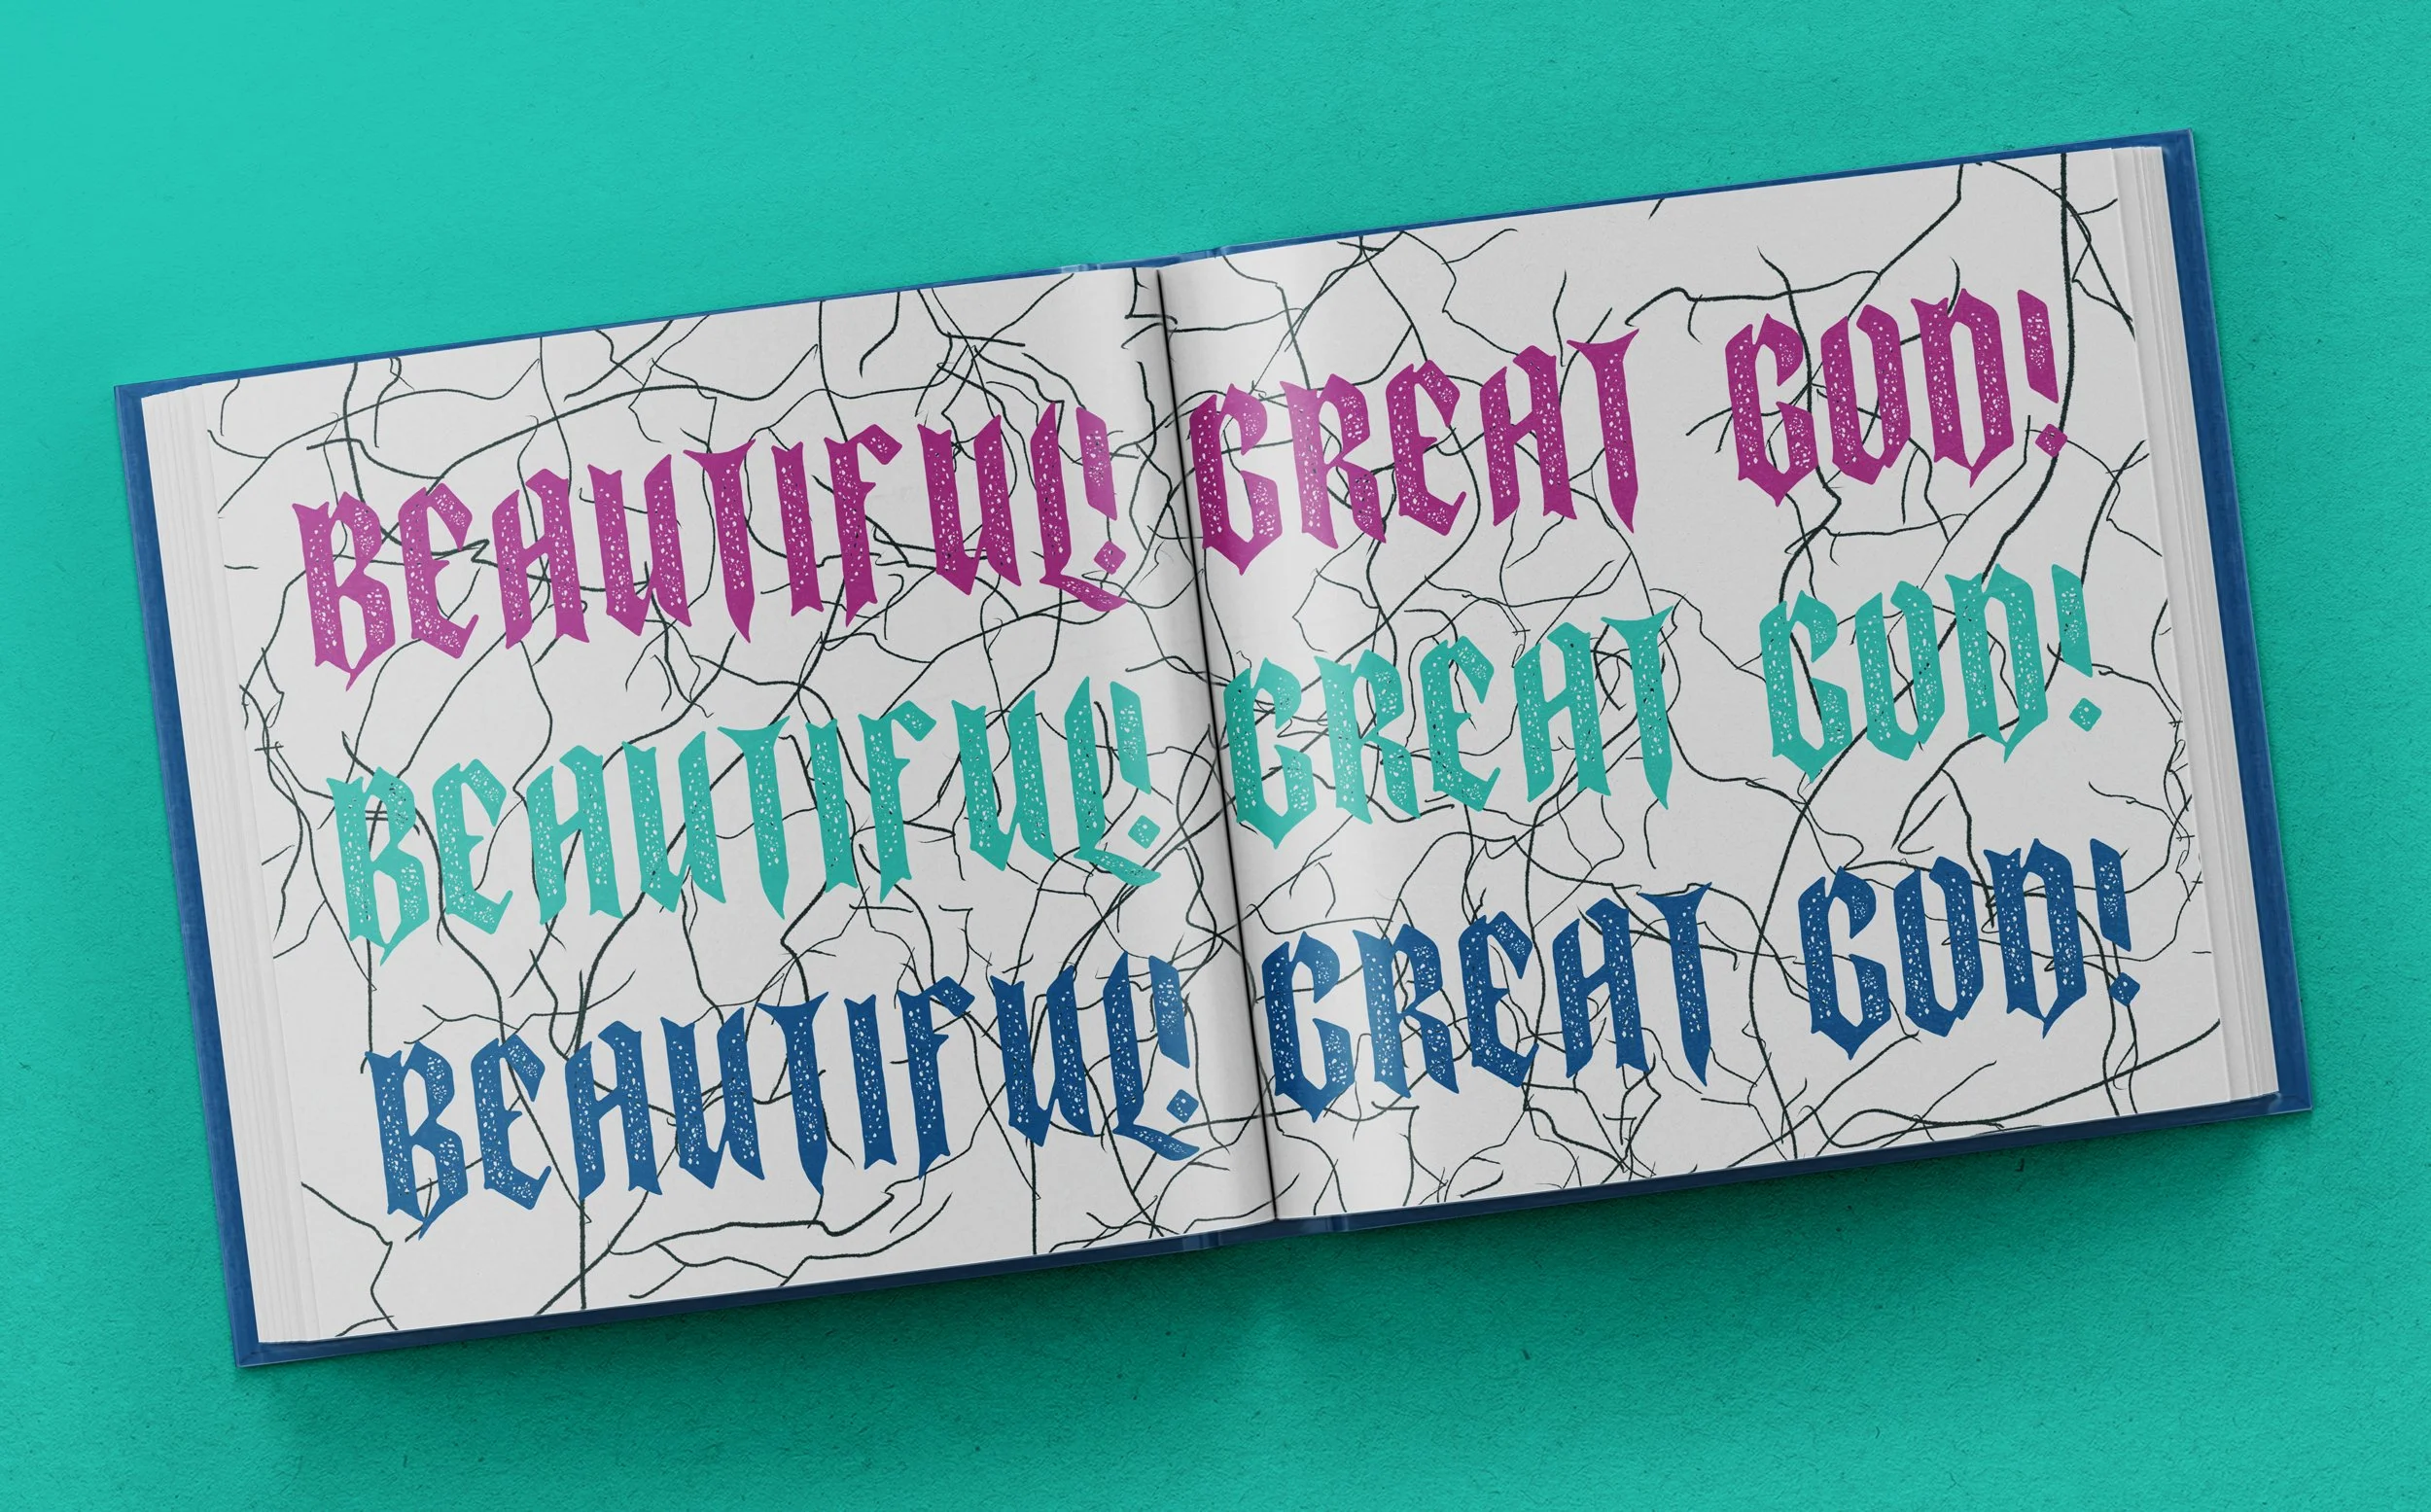 BEAUTIFUL! GREAT GOD!
BEAUTIFUL! GREAT GOD!
BEAUTIFUL! GREAT GOD!